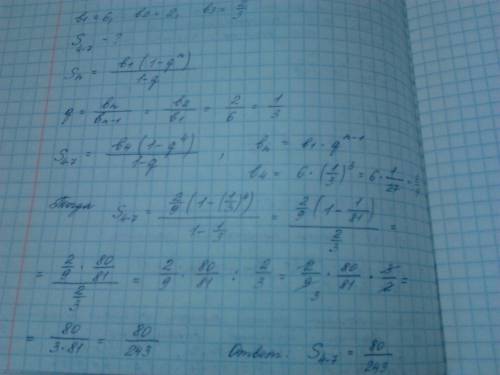 b₁ = 6, b₂ = 2, b₃ = 2/3
S₄₋₇ - ?
Sₙ = b₁(1-qⁿ)/(1-q)
q = bₙ/bₙ₋₁ = b₂/b₁ = 2/6 = 1/3
S₄₋₇ = b₄(1-q⁴)/(1-q) , bₙ = b₁·qⁿ⁻¹
b₄ = 6·(1/3)³ = 6·1/27 =
Тогда S₄₋₇ = (2/9(1-(1/3)⁴))/(1-1/3) = (2/9(1-1/81))/(2/3) =
= (2/9 · 80/81)/(2/3) = 2/9 · 80/81 : 2/3 = 2/9 · 80/81 · 3/2 =
3
= 80/(3·81) = 80/243 Ответ: S₄₋₇ = 80/243